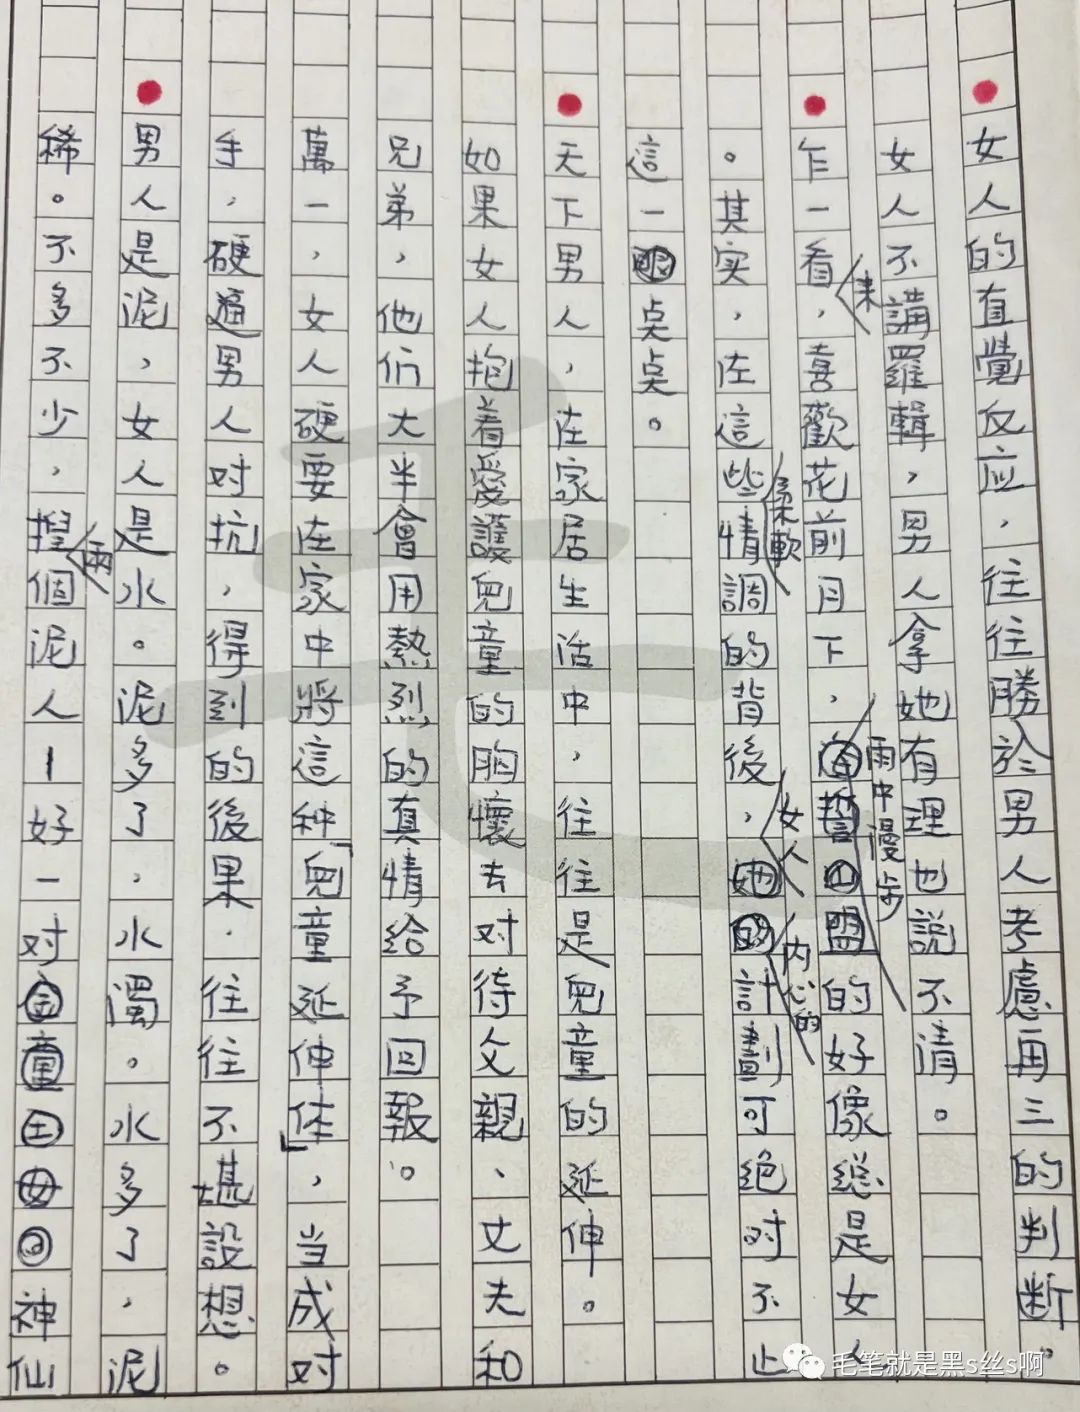 女人的直覺反应，往往勝於男人考慮再三的判断。
女人不講羅輯，男人拿她有理也說不清。
乍一看來，喜歡花前月下，雨中漫步的好像総是女人
。其实，在這些柔軟情調的背後，女人內心的計劃可绝对不止
這一点点。
天下男人，在家居生活中，往往是兒童的延伸。
如果女人抱着愛護兒童的胸懷去对待父親、丈夫和
兄弟，他们大半會用熱烈的真情給予回報。
萬一，女人硬要在家中將這种「兒童延伸体」，当成对
手，硬逼男人对抗，得到的後果．往往不堪設想。
男人是泥，女人是水。泥多了，水濁。水多了，泥
稀。不多不少，捏兩個泥人—好一对神仙
毛笔就是黑s丝s啊